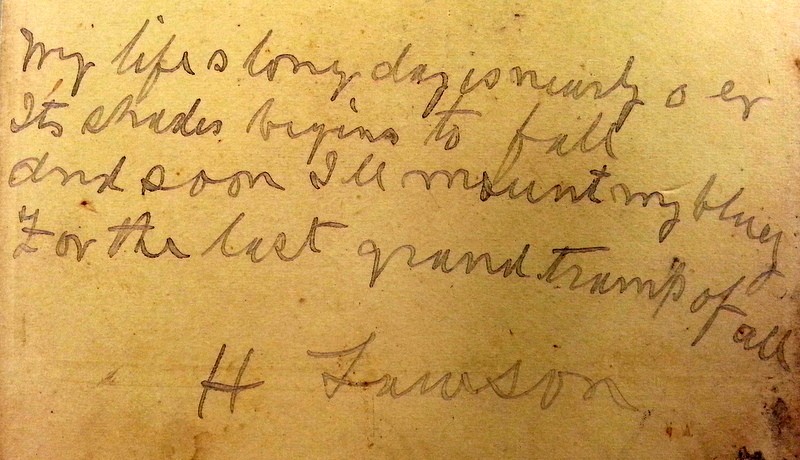 My lifes long day is nearly o er
Its shades begins to fall
And soon I ll mount my bluey
For the last grand tramp of all
H Lawson